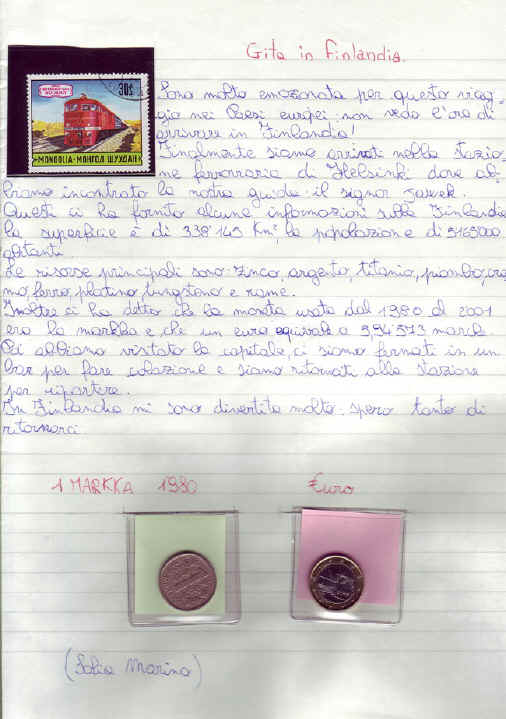 Gita in Finlandia.
30₮
MONGOLIA - МОНГОЛ ШУУДАН
Sono molto emozionata per questo viag-
gio nei Paesi europei: non vedo l'ora di
arrivare in Finlandia!
Finalmente siamo arrivati nella stazio-
ne ferroviaria di Helsinki dove ab-
biamo incontrato la nostra guida: il signor
Questi ci ha fornito alcune informazioni sulla Finlandia
la superficie è di 338145 Km², la popolazione è di 5165000
abitanti.
Le risorse principali sono: zinco, argento, titanio, piombo, cro
mo, ferro, platino, tungsteno e rame.
Inoltre ci ha detto che la moneta usata dal 1980 al 2001
era la markka e che un euro equivale a 5,94573 march
Poi abbiamo visitato la capitale, ci siamo fermati in un
bar per fare colazione e siamo ritornati alla stazione
per ripartire.
In Finlandia mi sono divertita molto: spero tanto di
ritornarci
1 MARKKA 1980 €uro
(Sofia Marino)